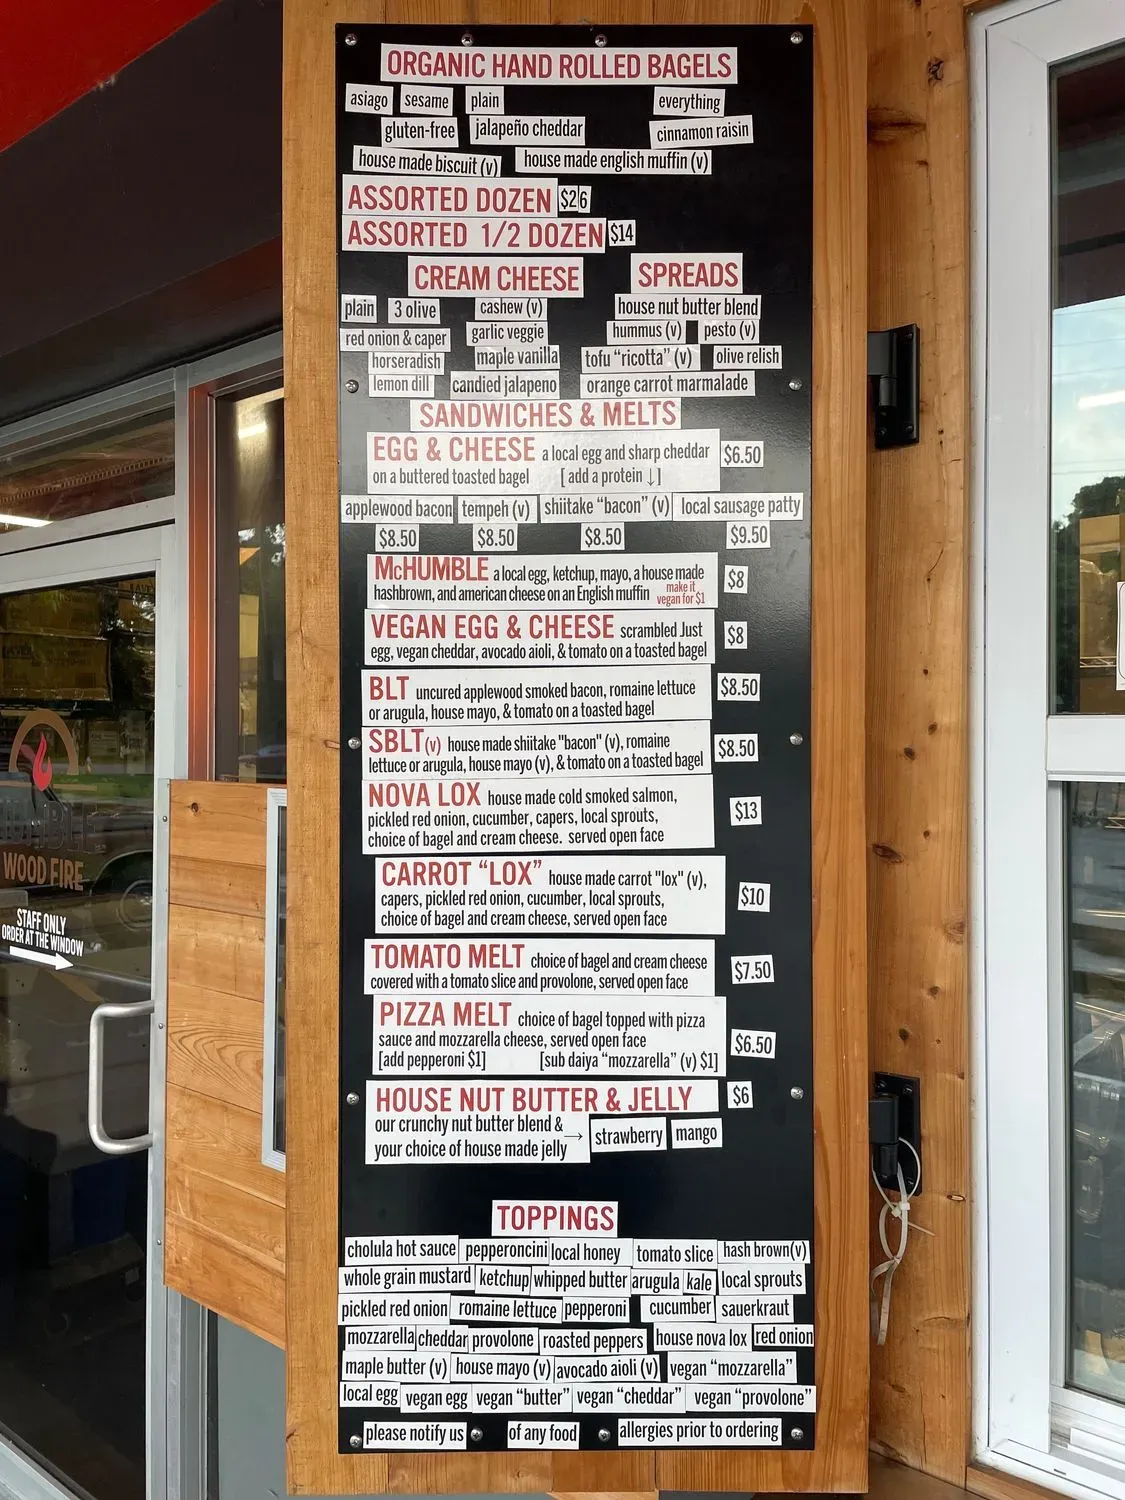 ORGANIC HAND ROLLED BAGELS
asiago sesame plain everything
gluten-free jalapeño cheddar cinnamon raisin
house made biscuit (v) house made english muffin (v)
ASSORTED DOZEN $26
ASSORTED 1/2 DOZEN $14
CREAM CHEESE SPREADS
plain 3 olive cashew (v) house nut butter blend
red onion & caper garlic veggie hummus (v) pesto (v)
horseradish maple vanilla tofu "ricotta" (v) olive relish
lemon dill candied jalapeno orange carrot marmalade
SANDWICHES & MELTS
EGG & CHEESE a local egg and sharp cheddar $6.50
on a buttered toasted bagel [ add a protein ↓ ]
applewood bacon tempeh (v) shiitake "bacon" (v) local sausage patty
$8.50 $8.50 $8.50 $9.50
McHUMBLE a local egg, ketchup, mayo, a house made $8
hashbrown, and american cheese on an English muffin make it
vegan for $1
VEGAN EGG & CHEESE scrambled Just $8
egg, vegan cheddar, avocado aioli, & tomato on a toasted bagel
BLT uncured applewood smoked bacon, romaine lettuce $8.50
or arugula, house mayo, & tomato on a toasted bagel
SBLT (v) house made shiitake "bacon" (v), romaine $8.50
lettuce or arugula, house mayo (v), & tomato on a toasted bagel
NOVA LOX house made cold smoked salmon,
pickled red onion, cucumber, capers, local sprouts, $13
choice of bagel and cream cheese. served open face
CARROT "LOX" house made carrot "lox" (v),
capers, pickled red onion, cucumber, local sprouts, $10
choice of bagel and cream cheese, served open face
TOMATO MELT choice of bagel and cream cheese $7.50
covered with a tomato slice and provolone, served open face
PIZZA MELT choice of bagel topped with pizza
sauce and mozzarella cheese, served open face $6.50
[add pepperoni $1] [sub daiya "mozzarella" (v) $1]
HOUSE NUT BUTTER & JELLY $6
our crunchy nut butter blend &
your choice of house made jelly → strawberry mango
TOPPINGS
cholula hot sauce pepperoncini local honey tomato slice hash brown(v)
whole grain mustard ketchup whipped butter arugula kale local sprouts
pickled red onion romaine lettuce pepperoni cucumber sauerkraut
mozzarella cheddar provolone roasted peppers house nova lox red onion
maple butter (v) house mayo (v) avocado aioli (v) vegan "mozzarella"
local egg vegan egg vegan "butter" vegan "cheddar" vegan "provolone"
please notify us of any food allergies prior to ordering
HUMBLE
WOOD FIRE
STAFF ONLY
ORDER AT THE WINDOW